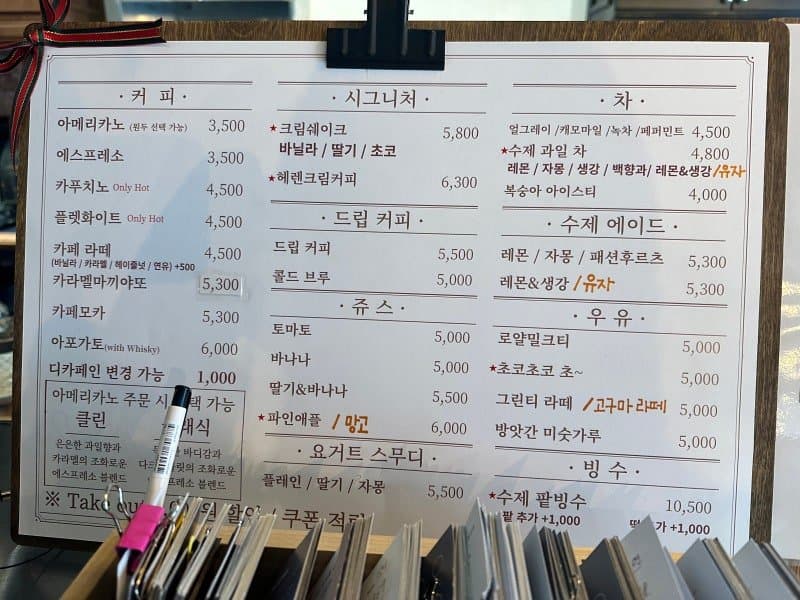 · 커 피 ·
아메리카노 (원두 선택 가능) 3,500
에스프레소 3,500
카푸치노 Only Hot 4,500
플랫화이트 Only Hot 4,500
카페 라떼 4,500
(바닐라 / 카라멜 / 헤이즐넛 / 연유) +500
카라멜마끼야또 5,300
카페모카 5,300
아포가토(with Whisky) 6,000
디카페인 변경 가능 1,000
아메리카노 주문 시 택 가능
클린
은은한 과일향과
카라멜의 조화로운
에스프레소 블렌드
래식
바디감과
릿의 조화로운
프레소 블렌드
※ Take out
할인 / 쿠폰 적립
· 시그니처 ·
★크림쉐이크 5,800
바닐라 / 딸기 / 초코
★헤렌크림커피 6,300
· 드립 커피 ·
드립 커피 5,500
콜드 브루 5,000
· 쥬 스 ·
토마토 5,000
바나나 5,000
딸기&바나나 5,500
★파인애플 / 망고 6,000
· 요거트 스무디 ·
플레인 / 딸기 / 자몽 5,500
· 차 ·
얼그레이 /캐모마일 /녹차 /페퍼민트 4,500
★수제 과일 차 4,800
레몬 / 자몽 / 생강 / 백향과/ 레몬&생강 /유자
복숭아 아이스티 4,000
· 수제 에이드 ·
레몬 / 자몽 / 패션후르츠 5,300
레몬&생강 /유자 5,300
· 우 유 ·
로얄밀크티 5,000
★초코초코 초~ 5,000
그린티 라떼 /고구마 라떼 5,000
방앗간 미숫가루 5,000
· 빙 수 ·
★수제 팥빙수 10,500
팥 추가 +1,000
가 +1,000